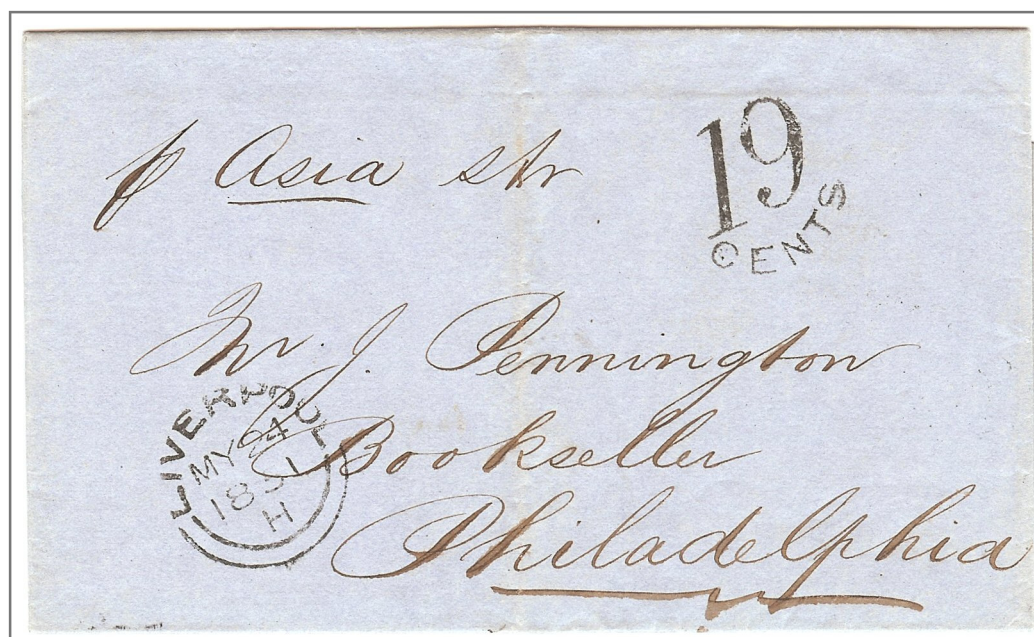 p Asia str
19
CENTS
Mr. J. Pennington
Bookseller
Philadelphia
LIVERPOOL
MY 24
1851
H